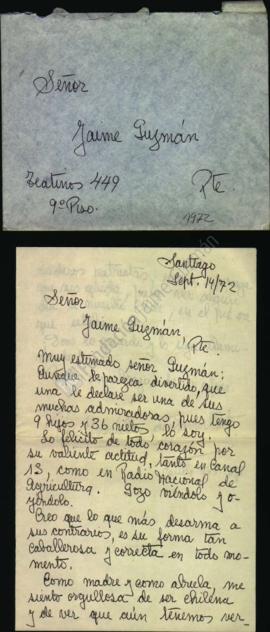 Señor
Jaime Guzmán
Teatinos 449
Pte.
9º Piso.
1972
Santiago
Sept. 14/72
Señor
Jaime Guzmán
Pte.
Muy estimado señor Guzmán:
Aunque le parezca divertido, que
una le declare ser una de sus
muchas admiradoras, pues tengo
9 hijos y 36 nietos lo soy.
Lo felicito de todo corazón por
su valiente actitud, tanto en Canal
13, como en Radio Nacional de
Agricultura. Gozo viéndolo y o-
yéndolo.
Creo que lo que más desarma a
sus contrarios, es su forma tan
caballerosa y correcta en todo mo-
mento.
Como madre y como abuela, me
siento orgullosa de ser chilena
y de ver que aún tenemos ver-